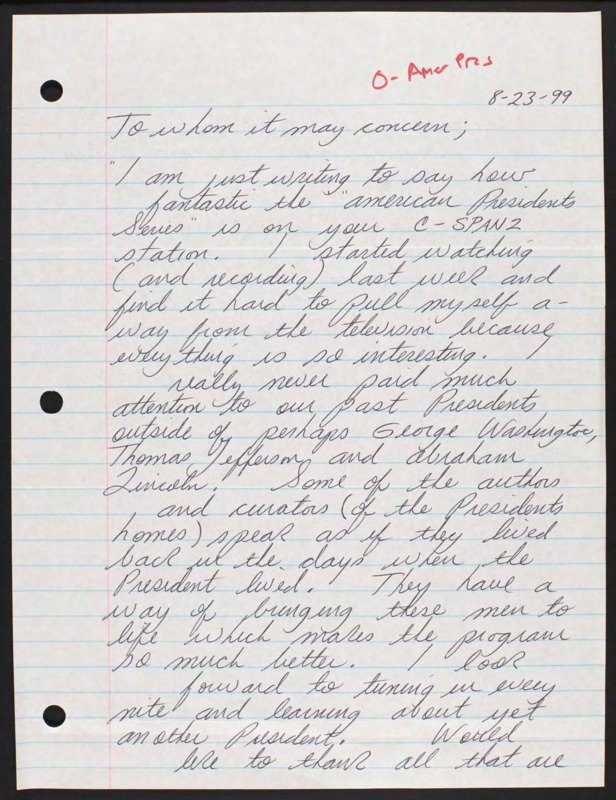 O- Amer Pres
8-23-99
To whom it may concern;
"I am just writing to say how
fantastic the "american Presidents
Series" is on your C-SPAN2
station. I started watching
(and recording) last week and
find it hard to pull myself a-
way from the television because
everything is so interesting. I
really never paid much
attention to our past Presidents
outside of perhaps George Washington,
Thomas Jefferson and abraham
Lincoln. Some of the authors
and curators (of the Presidents
homes) speak as if they lived
back in the days when the
President lived. They have a
way of bringing these men to
life which makes the program
so much better. I look
forward to tuning in every
nite and learning about yet
another President. Would
like to thank all that are